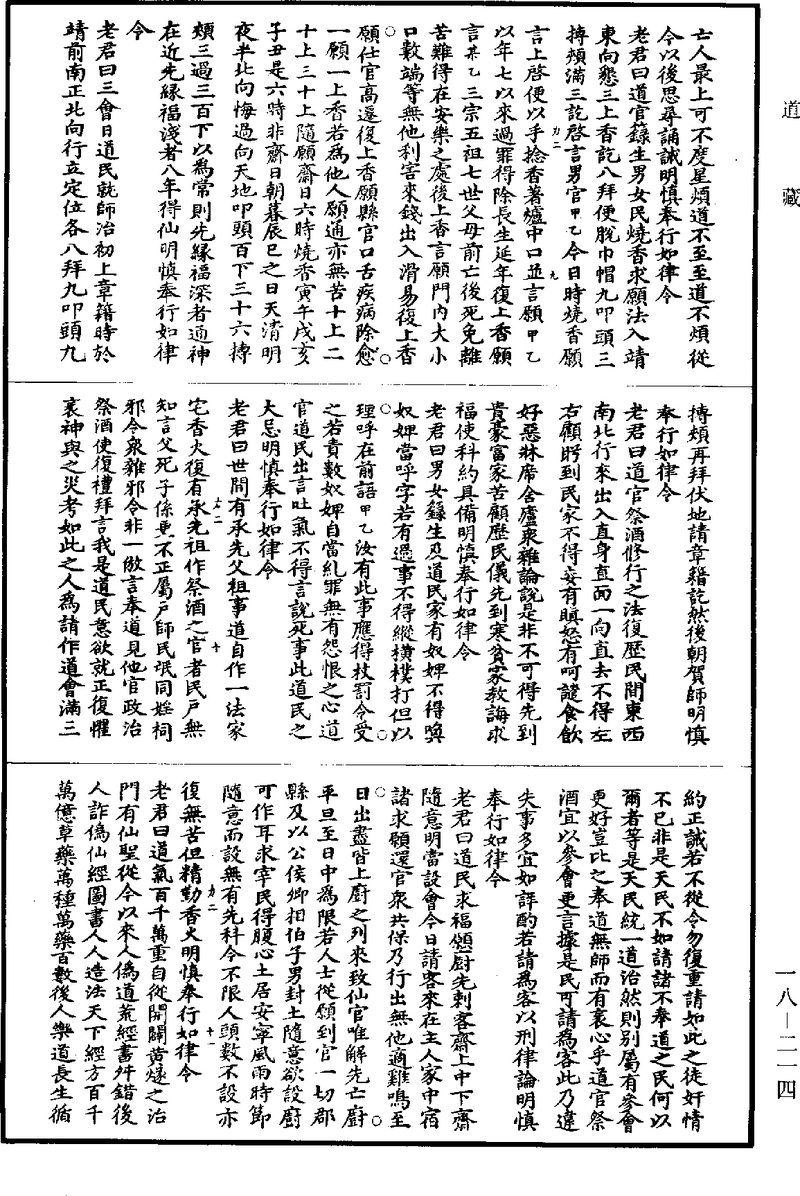 道藏
亡人最上可不度星煩道不至至道不煩從
今以後思尋誦誡明慎奉行如律令
老君曰道官籙生男女民燒香求願法入靖
東向懇三上香訖八拜便脫巾帽九叩頭三
搏頰滿三訖啓言男官甲乙今日時燒香願
言上啓便以手捻香著爐中口並言願甲乙
以年七以來過罪得除長生延年復上香願
言某乙三宗五祖七世父母前亡後死免離
苦難得在安樂之處後上香言願門內大小
口數端等無他利害來錢出入滑易復上香
願仕官高遷復上香願縣官口舌疾病除愈
一願一上香若為他人願通亦無苦十上二
十上三十上隨願齋日六時燒香寅午戌亥
子丑是六時非齋日朝暮辰巳之日天清明
夜半北向悔過向天地叩頭百下三十六搏
頰三過三百下以為常則先緣福深者通神
在近先緣福淺者八年得仙明慎奉行如律
令
老君曰三會日道民就師治初上章籍時於
靖前南正北向行立定位各八拜九叩頭九
搏頰再拜伏地請章籍訖然後朝賀師明慎
奉行如律令
老君曰道官祭酒修行之法復歷民間東西
南北行來出入直身直面一向直去不得左
右顧眄到民家不得妄有瞋怒有呵譴食飲
好惡牀席舍廬衆雜論說是非不可得先到
貴豪富家苦顧歷民儀先到寒貧家教誨求
福使科約具備明慎奉行如律令
老君曰男女籙生及道民家有奴婢不得喚
奴婢當呼字若有過事不得縱橫撲打但以
理呼在前語甲乙汝有此事應得杖罰令受
之若責數奴婢自當糺罪無有怨恨之心道
官道民出言吐氣不得言說死事此道民之
大忌明慎奉行如律令
老君曰世間有承先父祖事道自作一法家
宅香火復有承先祖作祭酒之官者民戶無
知言父死子係更不正屬戶師民泯同婬祠
邪令衆雜邪令非一倣言奉道見他官政治
祭酒使復禮拜言我是道民意欲就正復懼
衰神與之災考如此之人為請作道會滿三
約正誡若不從令勿復重請如此之徒奸情
不已非是天民不如請諸不奉道之民何以
爾者等是天民統一道治然則别屬有參會
更好豈比之奉道無師而有衷心乎道官祭
酒宜以參會更言據是民可請為客此乃違
失事多宜如詳酌若請為客以刑律論明慎
奉行如律令
老君曰道民求福願厨先刺客齋上中下齋
隨意明當設會今日請客來在主人家中宿
諸求願還官衆共保乃行出無他適雞鳴至
日出盡皆上厨之列來致仙官唯解先亡厨
平旦至日中為限若人士從願到官一切郡
縣及以公侯卿相伯子男封土隨意欲設厨
可作耳求宰民得腹心土居安寧風雨時節
隨意而設無有先科令不限人頭數不設亦
復無苦但精勤香火明慎奉行如律令
老君曰道氣百千萬重自從開闢黃燧之治
門有仙聖從今以來人偽道荒經書舛錯後
人詐偽仙經圖書人人造法天下經方百千
萬億草藥萬種萬藥百數後人樂道長生循
力二
九
力二
十
力二
十
一八—二一四